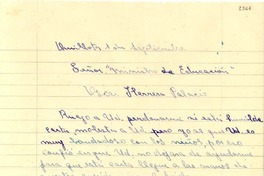 Quillota 1 de Septiembre
Señor "Ministro de Educación"
Oscar Herrera Palacio
Ruego a Ud. perdonarme si esta humilde
carta molesta a Ud. pero yo se que Ud. es
muy bondadoso con los niños, por eso
confío en que Ud. no dejara de ayudarme
para que esta carta llegue a las manos de